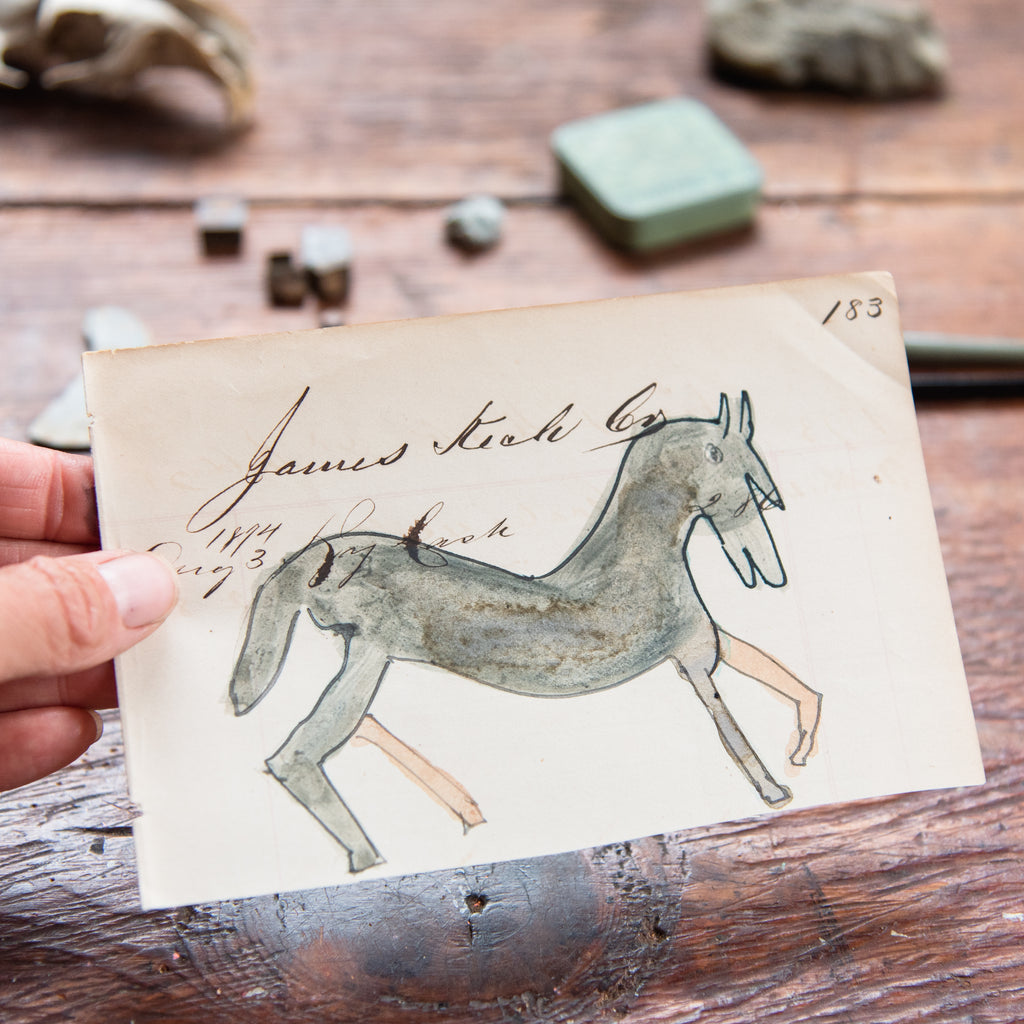 183
James Keech Cr
1894
Aug 3 By Cash 2 80